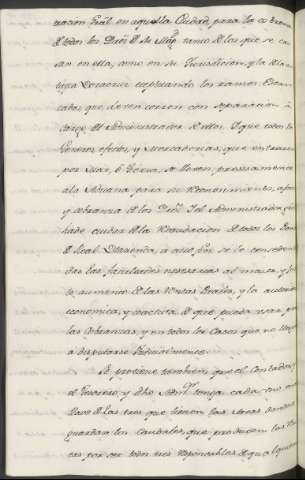 tracion Gral en aquella Ciudad, para la cobranza
de todos los Dros de S. Mag. tanto de los que se cau-
san en ella, como en su Jurisdiccion, y la de la
tigua Veracruz exceptuando los ramos Estan-
cados, que deven correr con separacion á
cargo del Administrador de ellos. Y que todos los
generos, efectos, y mercaderias, que entraren
por Mar, ó tierra, se lleven precisamente
a la Aduana para su Reconocimiento, afo
y cobranza de los Dros. del Administrador, que
ha de cuidar de la Recaudacion de todos los
de Real Hazienda, á cuio fin se le conceden
das las facultades necesarias al manejo, y
te aumento de las Rentas Reales, y la autorid
economica, y coactiva de que pueda usar pa
las cobranzas, y en todos los Casos que no lleg
á disputarse Judicialmente.
Se previene tambien que el Contador,
el Tesorero, y dho Admor. tenga cada uno
llave de las tres que tienen las Arcas donde
guardan los Caudales, que producen las Ren
tas por ser todos tres responsables de qualquiera